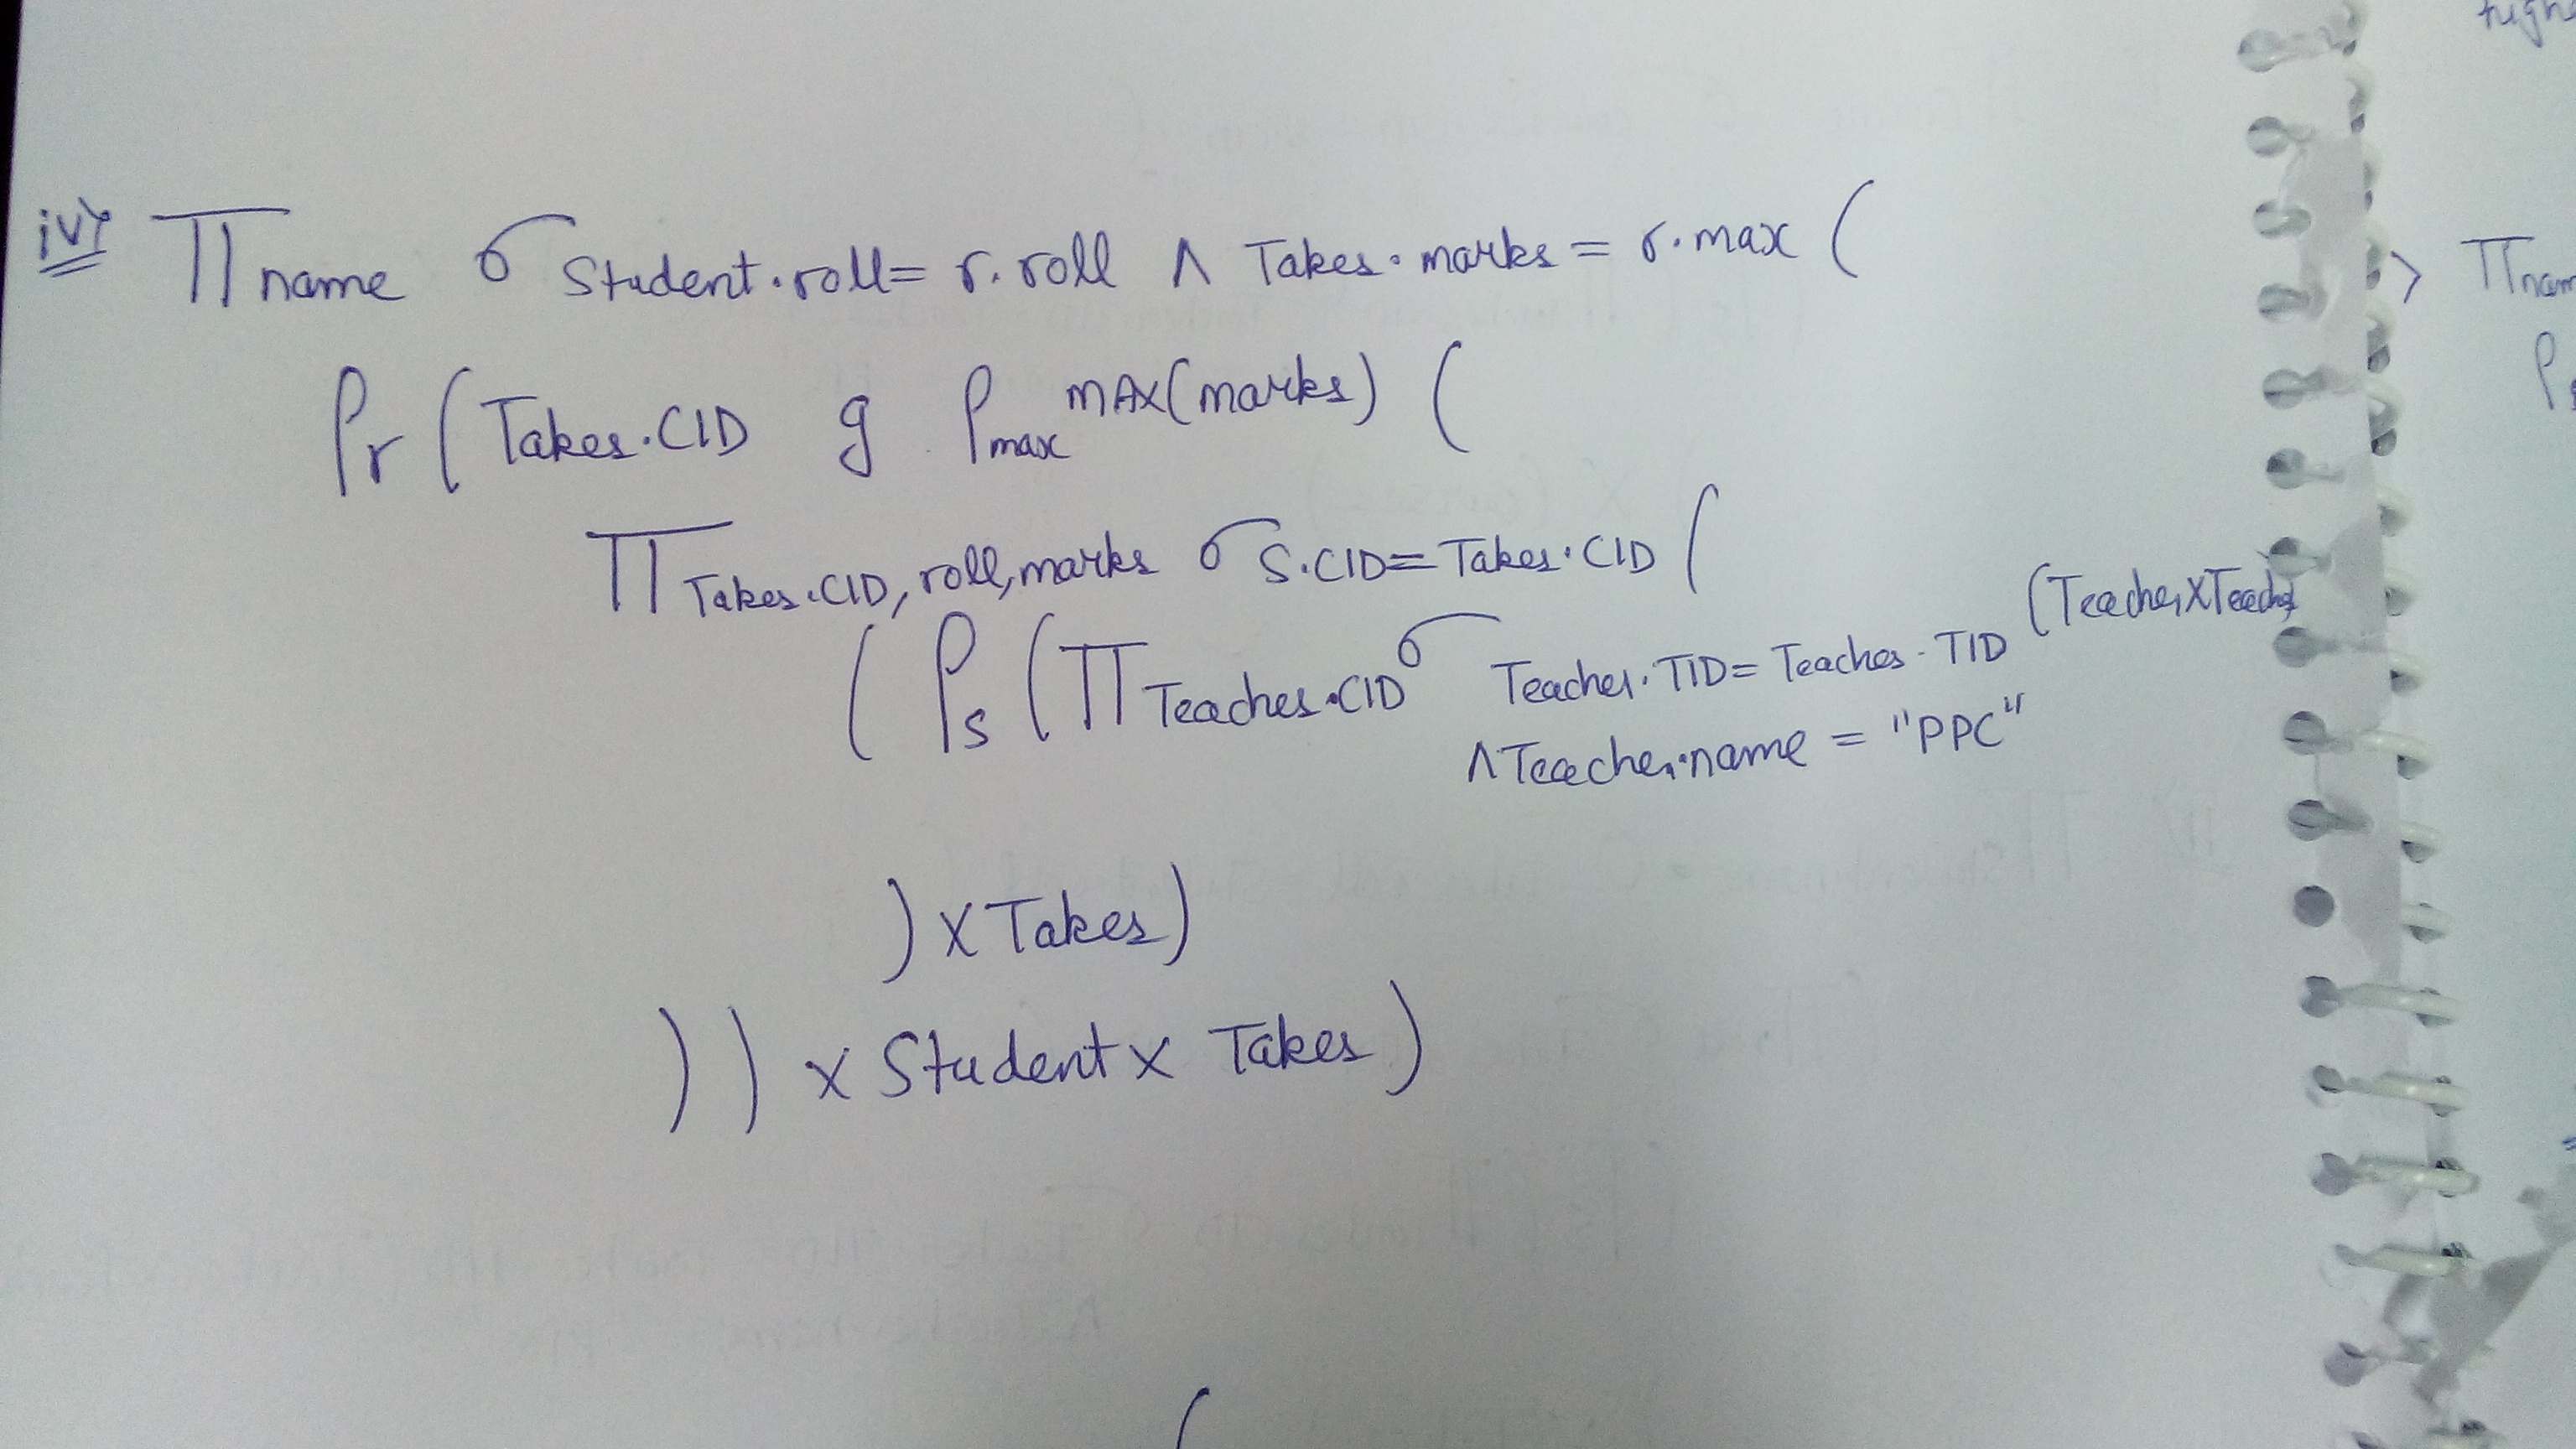 iv) Π name σ Student.roll = r.roll ∧ Takes.marks = r.max (
ρr ( Takes.CID g ρmax MAX(marks) (
Π Takes.CID, roll, marks σ S.CID = Takes.CID (
( ρs ( Π Teaches.CID σ Teacher.TID = Teaches.TID (Teacher X Teaches
∧ Teacher.name = "PPC"
) X Takes )
) ) x Student x Takes )
(
> Π nam
ρ